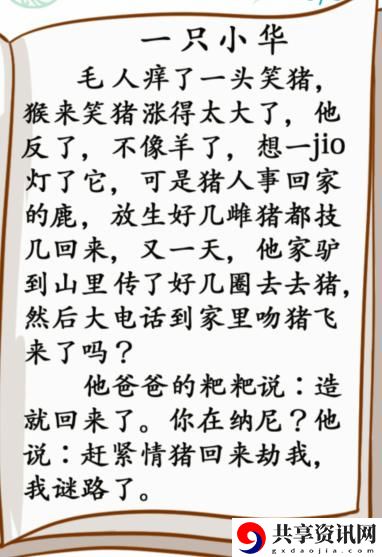 一只小华
毛人痒了一头笑猪，
猴来笑猪涨得太大了，他
反了，不像羊了，想一jio
灯了它，可是猪人事回家
的鹿，放生好几雌猪都技
几回来，又一天，他家驴
到山里传了好几圈去去猪，
然后大电话到家里吻猪飞
来了吗？
他爸爸的粑粑说：造
就回来了。你在纳尼？他
说：赶紧情猪回来劫我，
我谜路了。
共享资讯网
gxdaojia.com